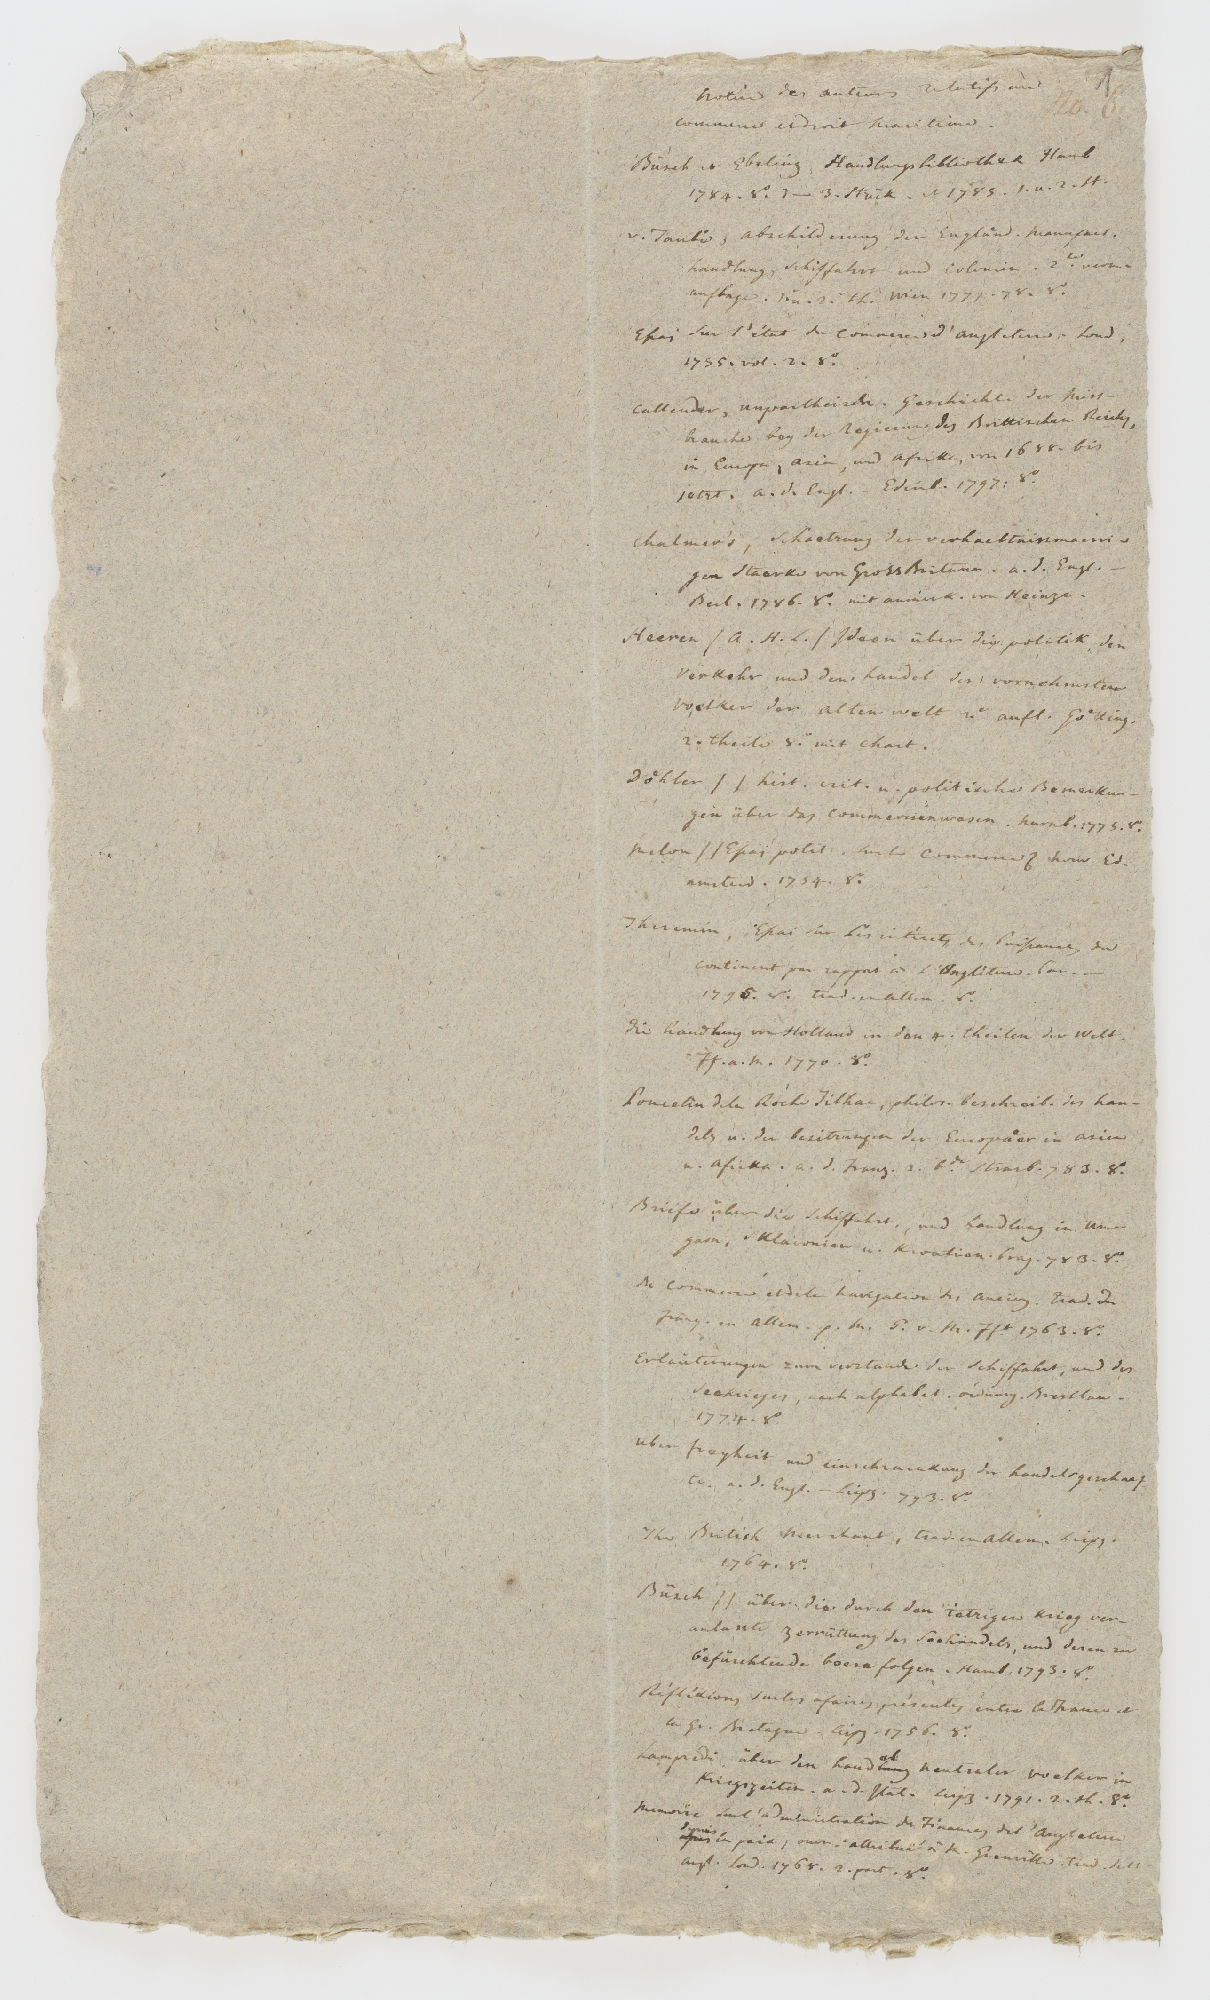 Notice des auteurs relatifs au
commerce et droit maritime.
Büsch et Ebeling, Handlungsbibliothek Hamb
1784. 8º. 1–3. Stück. et 1785. 1. u. 2. St.
v. Taube, abschilderung der Engländ. manufact.
handlung, Schiffahrt und Colonien. 2te verm.
auflage. 1. u. 2. th. Wien 1777–78. 8º.
Essai sur l'état du commerce d'angleterre. Lond.
1755. vol. 2. 8º.
Callender, unpartheiische. Geschichte der miss-
brauche bey der Regierung des Brittischen Reichs,
in Europa, asien, und afrika, von 1688. bis
jetzt. a. d. Engl. – Edinb. 1797. 8º.
Chalmer's, Schaetzung der verhaeltnismaessi-
gen Staerke von Gross Britann. a. d. Engl. –
Berl. 1786. 8º. mit anmerk. von Heinze.
Heeren / A. H. L. / Ideen über die politik, den
Verkehr und den handel der vornehmsten
voelker der alten welt 2e aufl. Götting.
2. theile 8º mit chart.
Döhler / / hist. crit. u. politische Bemerkun-
gen über das commercienwesen. Nurnb. 1775. 8º.
Melon / / Essai polit. sur le commerce nouv Ed.
amsterd. 1754. 8º.
Theremin, Essai sur les intérets des Puissances du
continent par rapport à l'Angleterre. Par. –
1795. 8º. trad. en allem. 8º.
Die handlung von Holland in den 4. theilen der Welt.
Ff. a. M. 1770. 8º.
Poncelin de la Roche Tilhac, philos. beschreib. des han-
dels u. der besitzungen der Europäer in asien
u. Afrika. a. d. Franz. 2. bde Strasb. 783. 8º.
Briefe über die Schiffahrt, und handlung in Un-
garn, Sklavonien u. Kroatien. Prag. 783. 8º.
du commerce et de la navigation des anciens. trad. du
franç. en allem. p. M. P. v. M. Fft 1763. 8º.
Erläuterungen zum verstande der Schiffahrt, und des
Seekrieges, nach alphabet. ordnung. Bresslau –
1774. 8º
uber freyheit und einschraenkung der handelsgeschaef-
te. a. d. Engl. – Leipz. 793. 8º.
The British merchant, trad. en allem. Leipz.
1764. 8º.
Büsch / / über die durch den ietzigen Krieg ver-
anlasste Zerrüttung des Seehandels, und deren zu
befürchtende boese folgen. Hamb. 1793. 8º.
Réfléxions sur les afaires présentes entre la France et
la Gr. Bretagne. Leipz. 1756. 8º.
Lampredi über den handel neutraler voelker in
Kriegszeiten. a. d. Ital. Leipz. 1791. 2. th. 8º.
Memoire sur l'administration des Finances de l'Angleterre
depuis la paix, ouvr. attribué à M. Grenville trad. de l'
angl. Lond. 1768. 2. part. 8º.